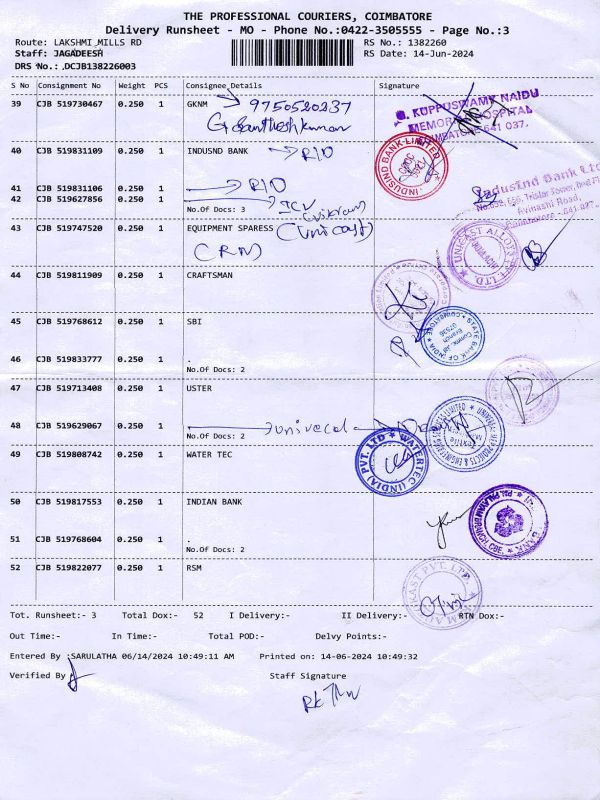 THE PROFESSIONAL COURIERS, COIMBATORE
Delivery Runsheet - MO - Phone No.:0422-3505555 - Page No.:3
Route: LAKSHMI MILLS RD RS No.: 1382260
Staff: JAGADEESH RS Date: 14-Jun-2024
DRS No.: DCJB138226003
S No Consignment No Weight PCS Consignee Details Signature
39 CJB 519730467 0.250 1 GKNM 9750520237
G. KUPPUSWAMY NAIDU
MEMORIAL HOSPITAL
COIMBATORE-641 037.
40 CJB 519831109 0.250 1 INDUSND BANK → RIO
INDUSIND BANK LIMITED
41 CJB 519831106 0.250 1 → RIO
42 CJB 519627856 0.250 1
No.Of Docs: 3
IndusInd Bank Ltd
Avinashi Road,
Coimbatore - 641 037.
43 CJB 519747520 0.250 1 EQUIPMENT SPARESS (Unicast)
44 CJB 519811909 0.250 1 CRAFTSMAN
45 CJB 519768612 0.250 1 SBI
STATE BANK OF INDIA
COIMBATORE
46 CJB 519833777 0.250 1 .
No.Of Docs: 2
47 CJB 519713408 0.250 1 USTER
48 CJB 519629067 0.250 1
No.Of Docs: 2
49 CJB 519808742 0.250 1 WATER TEC
WATERTEC (INDIA) PVT. LTD
50 CJB 519817553 0.250 1 INDIAN BANK
51 CJB 519768604 0.250 1 .
No.Of Docs: 2
52 CJB 519822077 0.250 1 RSM
Tot. Runsheet:- 3 Total Dox:- 52 I Delivery:- II Delivery:- RTN Dox:-
Out Time:- In Time:- Total POD:- Delvy Points:-
Entered By :SARULATHA 06/14/2024 10:49:11 AM Printed on: 14-06-2024 10:49:32
Verified By Staff Signature